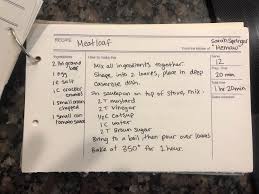 RECIPE: Meatloaf
FROM THE KITCHEN OF: Sarah Springer
"Memaw"
Ingredients
2 lbs ground
beef
1 egg
1t salt
1 C cracker
crumbs
1 small onion
chopped
1 small can
tomato sauce
How to make it:
Mix all ingredients together.
Shape into 2 loaves, place in deep
casserole dish.
In saucepan on top of stove, mix:
2 T mustard
2 T vinegar
1/2 C catsup
1 C water
2 T Brown sugar
Bring to a boil then pour over loaves
Bake at 350° for 1 hour.
12
20 min
1 hr 20 min